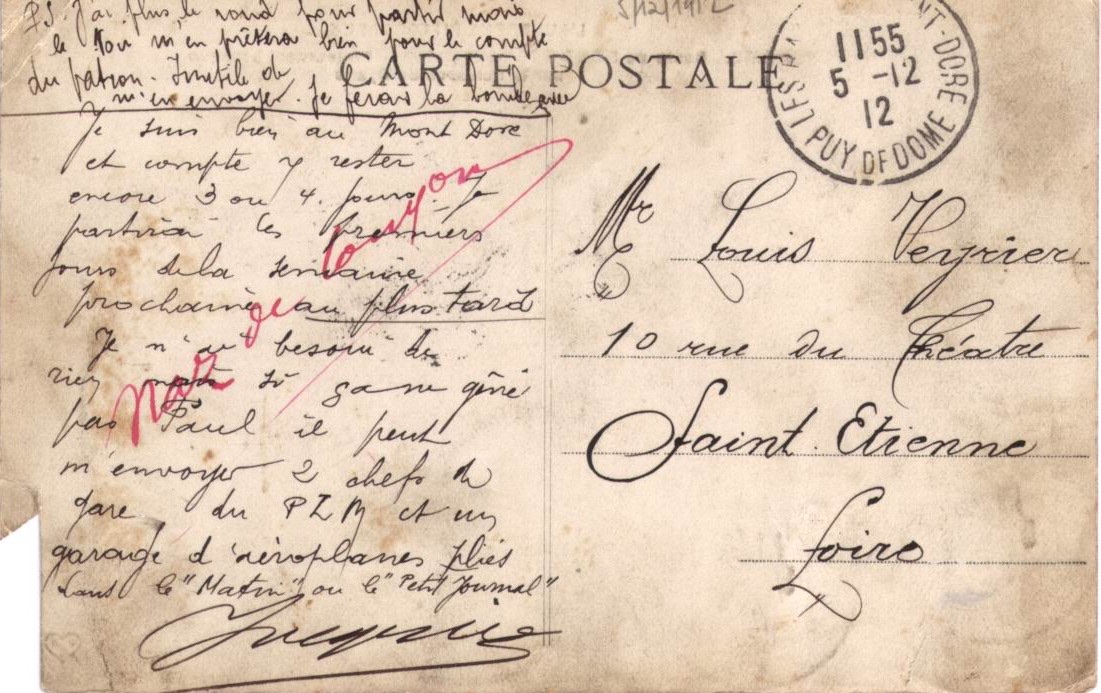 P.S. J'ai plus le rond pour partir mais
le Mon m'en prêtera bien pour le compte
du patron. Inutile de
m'en envoyer. Je ferai la
CARTE POSTALE
5/12/1912
LES BAINS MONT-DORE
1155
5 -12
12
PUY DE DOME
Je suis bien au Mont Dore
et compte y rester
encore 3 ou 4 jours. Je
partirai les premiers
jours de la semaine
prochaine au plus tard
Je n'ai besoin de
rien mais si ça ne gêne
pas Paul il peut
m'envoyer 2 chefs de
gare du PLM et un
garage d'aéroplanes pliés
dans le "Matin" ou le "Petit Journal"
Mr Louis Veyrier
10 rue du Théatre
Saint. Etienne
Loire